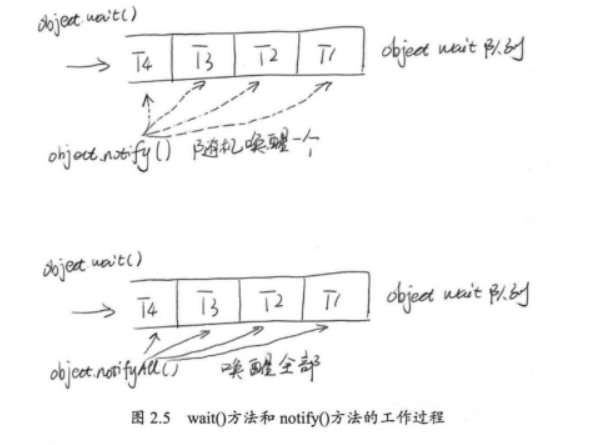 object.wait()
T4 T3 T2 T1 object wait 队列
object.notify() 随机唤醒一个
object.wait()
T4 T3 T2 T1 object wait 队列
object.notifyAll() 唤醒全部
图 2.5 wait()方法和 notify()方法的工作过程